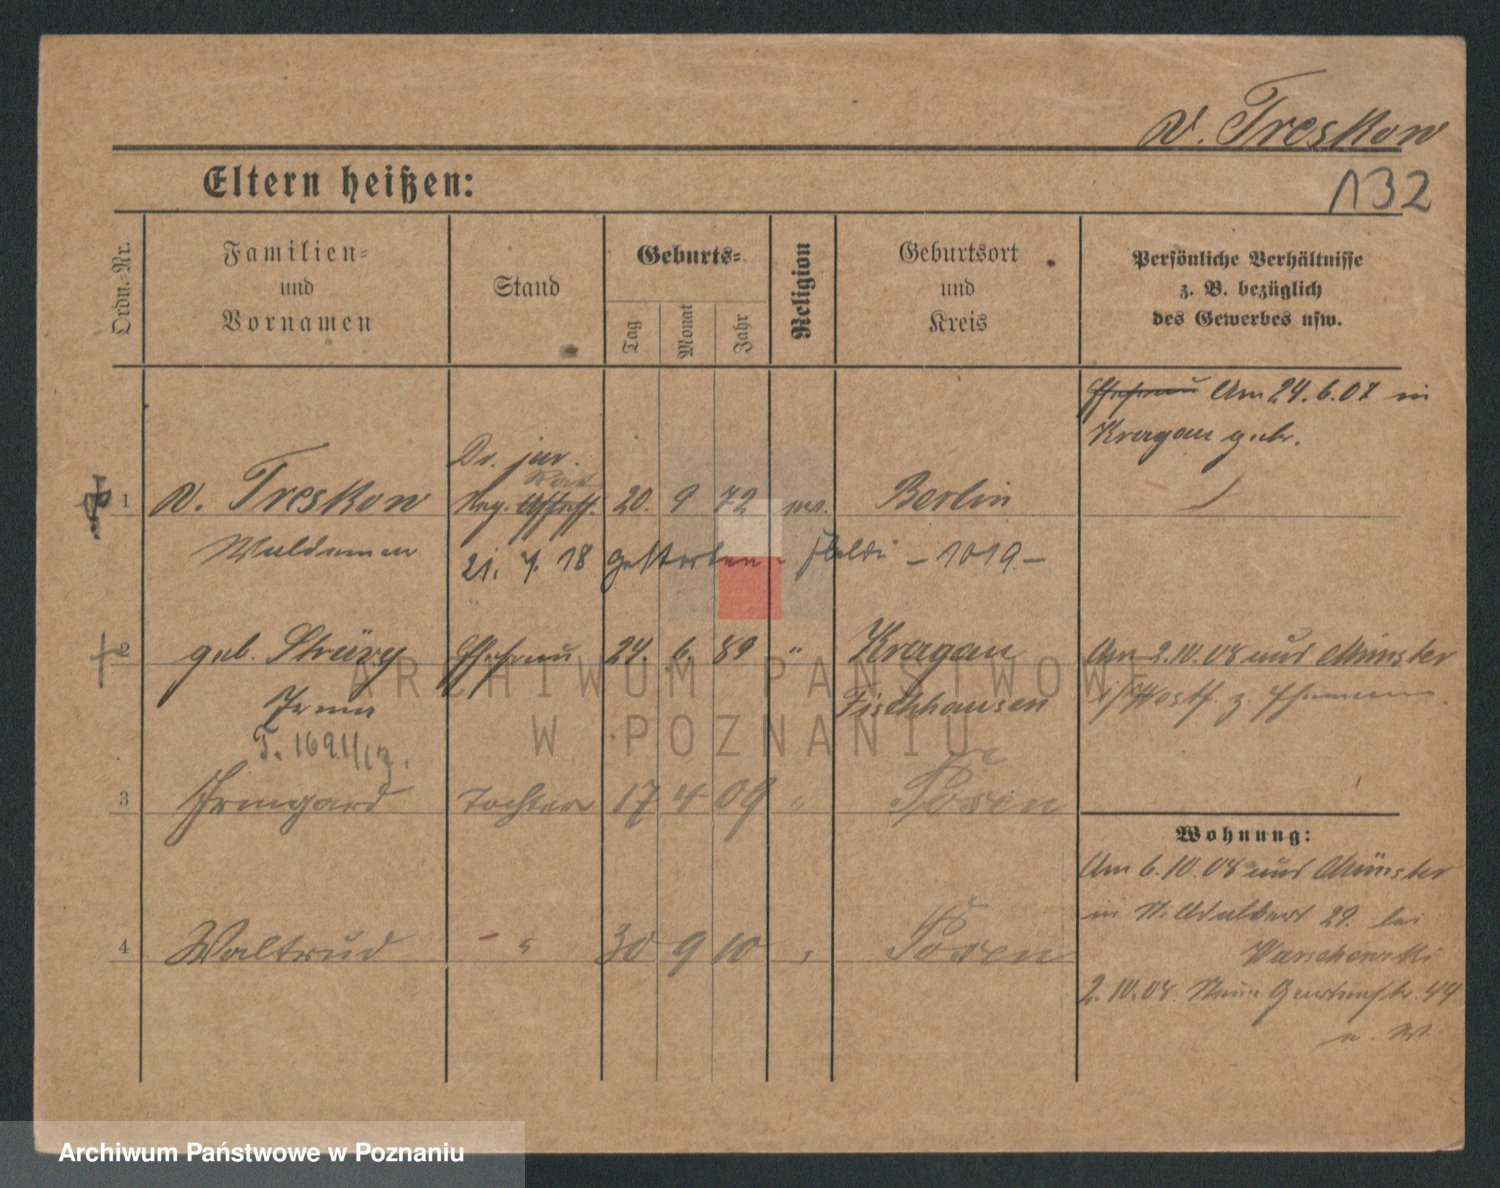 v. Treskow
Eltern heißen:
132
Ordn.-Nr.
Familien-
und
Vornamen
Stand
Geburts-
Tag
Monat
Jahr
Religion
Geburtsort
und
Kreis
Persönliche Verhältnisse
z. B. bezüglich
des Gewerbes usw.
Ehefrau Am 24.6.07 in
Kragau geehl.
Dr. jur.
Rat
1 v. Treskow Reg. Assess. 20. 9 72 ev. Berlin
Waldemar
21. 7. 18 gestorben - 1019 -
2 geb. Strüvy Ehefrau 24. 6. 89 " Kragau
Irma Fischhausen
Am 2.10.08 aus Münster
i/Westf. z.
T. 1691/13.
3 Irmgard Tochter 17 4 09 " Posen
Wohnung:
Am 6.10.08 aus Münster
in St. Adalbert 29. bei
Warschewski
4 Waltrud " 30 9 10 " Posen
2.10.08 Neue Gartenstr. 44
ARCHIWUM PAŃSTWOWE
W POZNANIU
Archiwum Państwowe w Poznaniu